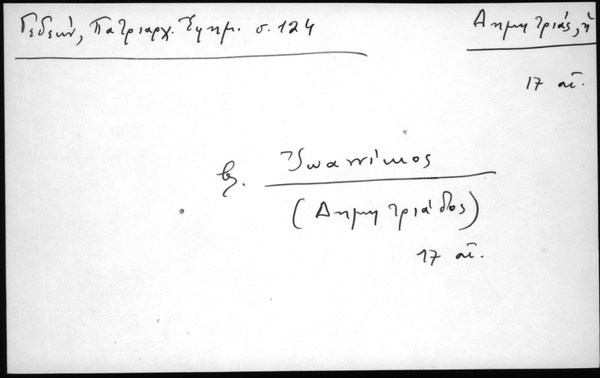 Γεδεών, Πατριαρχ. Ἐφημ. σ. 124
Δημητριάς, ἡ
17 αἰ.
βλ. Ἰωαννίκιος
(Δημητριάδος)
17 αἰ.